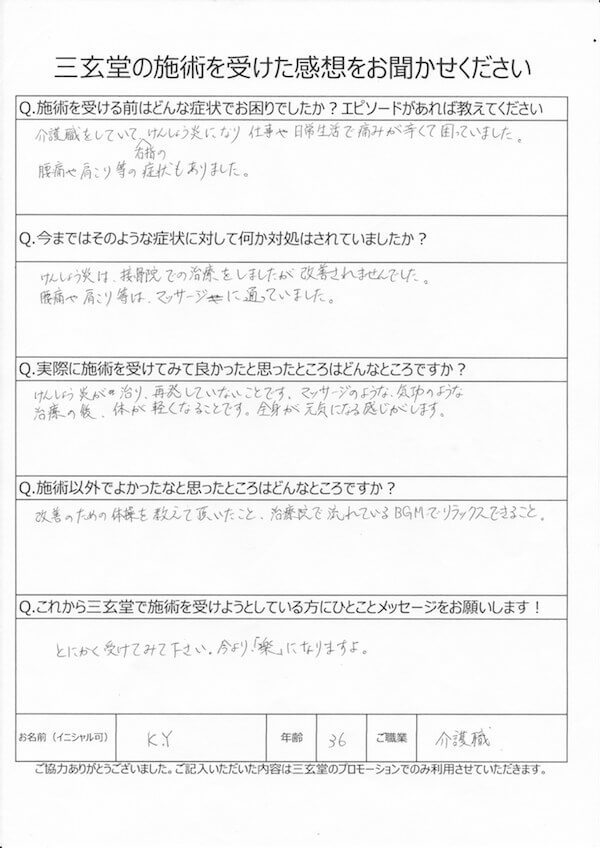 三玄堂の施術を受けた感想をお聞かせください
Q.施術を受ける前はどんな症状でお困りでしたか？エピソードがあれば教えてください
介護職をしていて、けんしょう炎になり 仕事や日常生活で痛みが辛くて困っていました。
右指の
腰痛や肩こり等の症状もありました。
Q.今まではそのような症状に対して何か対処はされていましたか？
けんしょう炎は、接骨院での治療をしましたが改善されませんでした。
腰痛や肩こり等は、マッサージに通っていました。
Q.実際に施術を受けてみて良かったと思ったところはどんなところですか？
けんしょう炎が治り、再発していないことです。マッサージのような、気功のような
治療の後、体が軽くなることです。全身が元気になる感じがします。
Q.施術以外でよかったなと思ったところはどんなところですか？
改善のための体操を教えて頂いたこと、治療院で流れているBGMでリラックスできること。
Q.これから三玄堂で施術を受けようとしている方にひとことメッセージをお願いします！
とにかく受けてみて下さい。今より「楽」になりますよ。
お名前（イニシャル可） K.Y 年齢 36 ご職業 介護職
ご協力ありがとうございました。ご記入いただいた内容は三玄堂のプロモーションでのみ利用させていただきます。